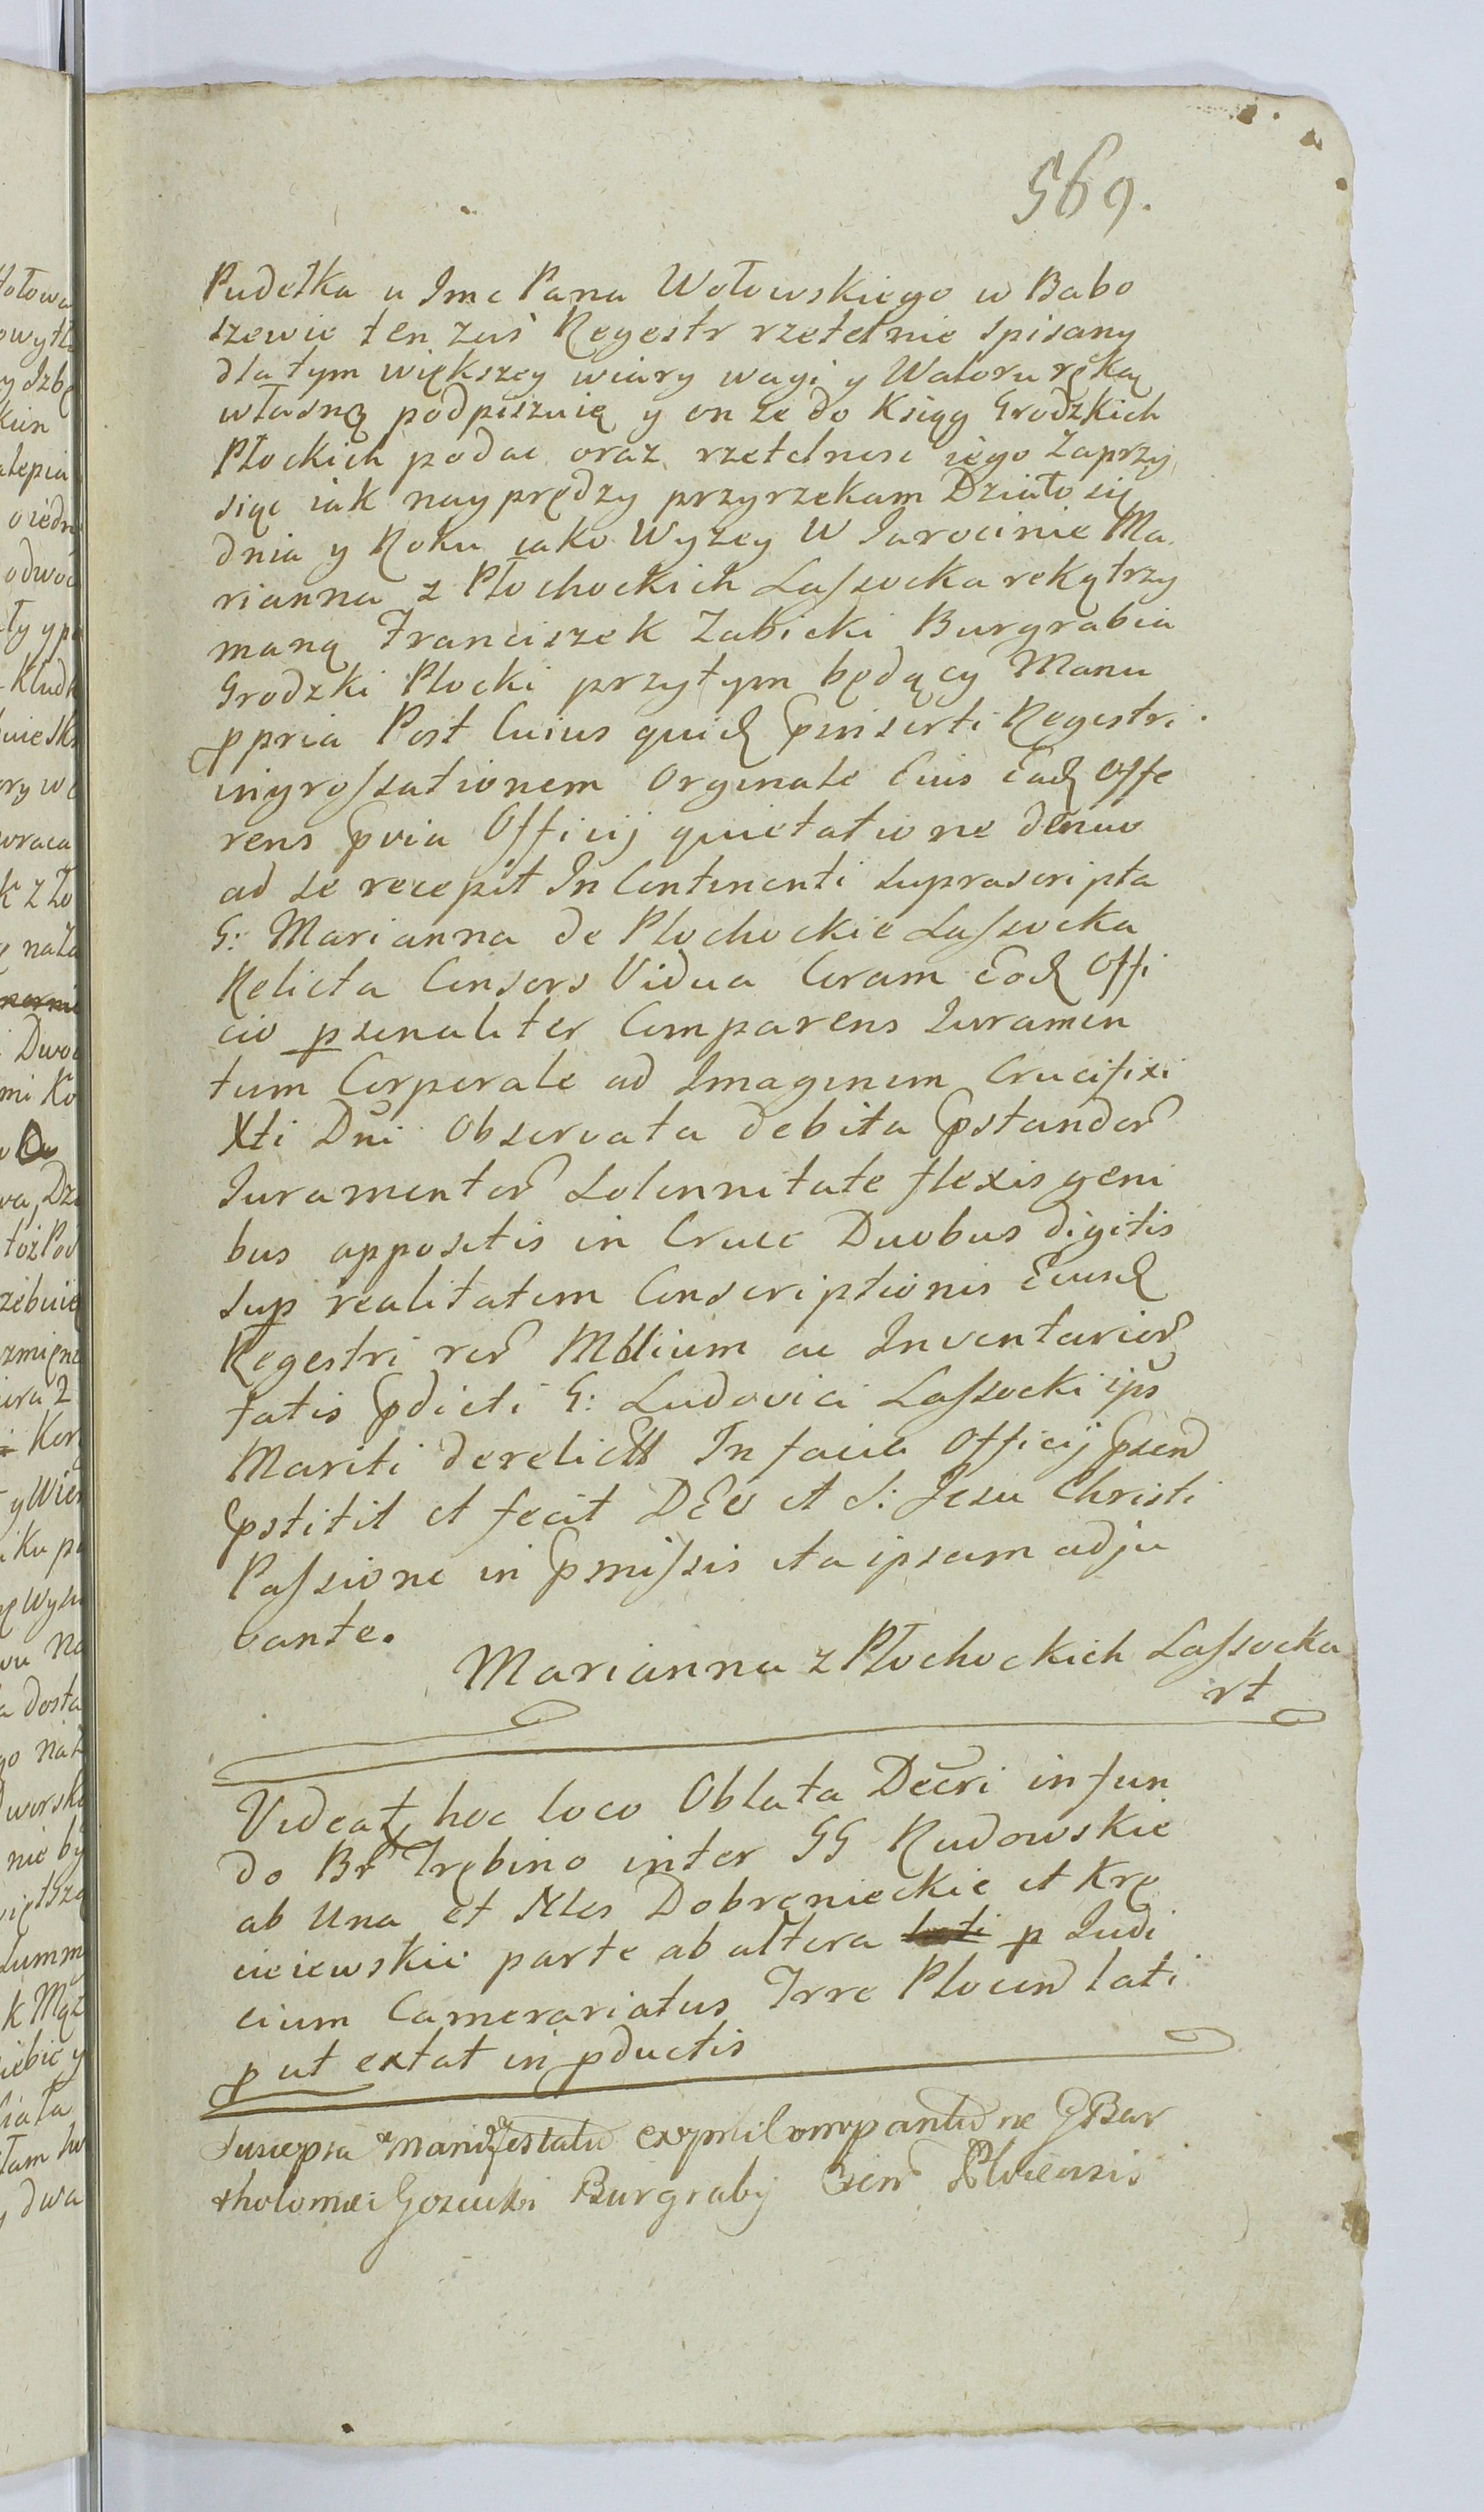 569.
Pudełka u Imc Pana Wołowskiego w Babo
szewie ten zaś Regestr rzetelnie spisany
dla tym większey wiary wagi y Waloru ręką
własną podpisuię y on ze do Ksiąg Grodzkich
Płockich podac oraz rzetelnosc iego zaprzy
siąc iak nayprędzy przyrzekam Działo się
dnia y Roku iako Wyzey W Jarocinie Ma
rianna z Płochockich Lassocka ręką trzy
maną Franciszek Zabicki Burgrabia
Grodzki Płocki przytym będący Manu
ppria Post Cuius quid pinserti Regestri
ingrossationem Orginale Eius Ead Offe
rens pvia Officij quietatione denuo
ad se recepit In Continenti suprascripta
G: Marianna de Płochockie Lassocka
Relicta Consors Vidua Coram Eod Offi
cio psonaliter Comparens Juramen
tum Corporale ad Imaginem Crucifixi
Xti Dni Observata debita pstandor
Juramentor Solennitate flexis geni
bus appositis in Cruce Duobus digitis
Sup realitatem Conscriptionis Eiusd
Regestri rer Mblium ac Inventarior
tatis pdicti G: Ludovici Lassocki ips
Mariti derelict In facie Officij psend
pstitit et fecit DEo et S: Jesu Christi
Passione in pmissis ita ipsam adju
vante.
Marianna z Płochockich Lassocka
rt
Videat hoc loco Oblata Decri in fun
do Br Trębino inter GG Rudowskie
ab Una et Nles Dobrenieckie et Krę
cieiewskie parte ab altera lati p Judi
cium Camerariatus Trre Plocen lati
put extat in pductis
Suscepta Manifestatio
tholomei Burgrabij Plocensis